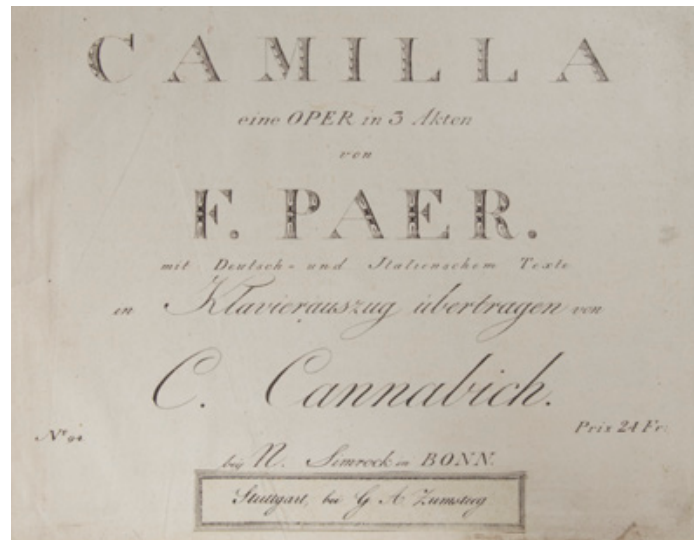 CAMILLA
eine OPER in 3 Akten
von
F. PAER.
mit Deutsch= und Italienschem Texte
in Klavierauszug übertragen von
C. Cannabich.
Nº 94
Prix 24 Fr:
bey N. Simrock in BONN.
Stuttgart, bei G. A. Zumsteeg